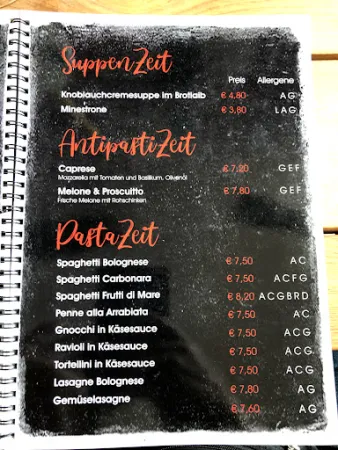 SuppenZeit
Preis Allergene
Knoblauchcremesuppe im Brotlaib € 4,80 A G
Minestrone € 3,80 L A G
AntipastiZeit
Caprese € 7,20 G E F
Mozzarella mit Tomaten und Basilikum, Olivenöl
Melone & Proscuitto € 7,80 G E F
Frische Melone mit Rohschinken
PastaZeit
Spaghetti Bolognese € 7,50 A C
Spaghetti Carbonara € 7,50 A C F G
Spaghetti Frutti di Mare € 8,20 A C G B R D
Penne alla Arrabiata € 7,50 A C
Gnocchi in Käsesauce € 7,50 A C G
Ravioli in Käsesauce € 7,50 A C G
Tortellini in Käsesauce € 7,50 A C G
Lasagne Bolognese € 7,80 A G
Gemüselasagne € 7,60 A G